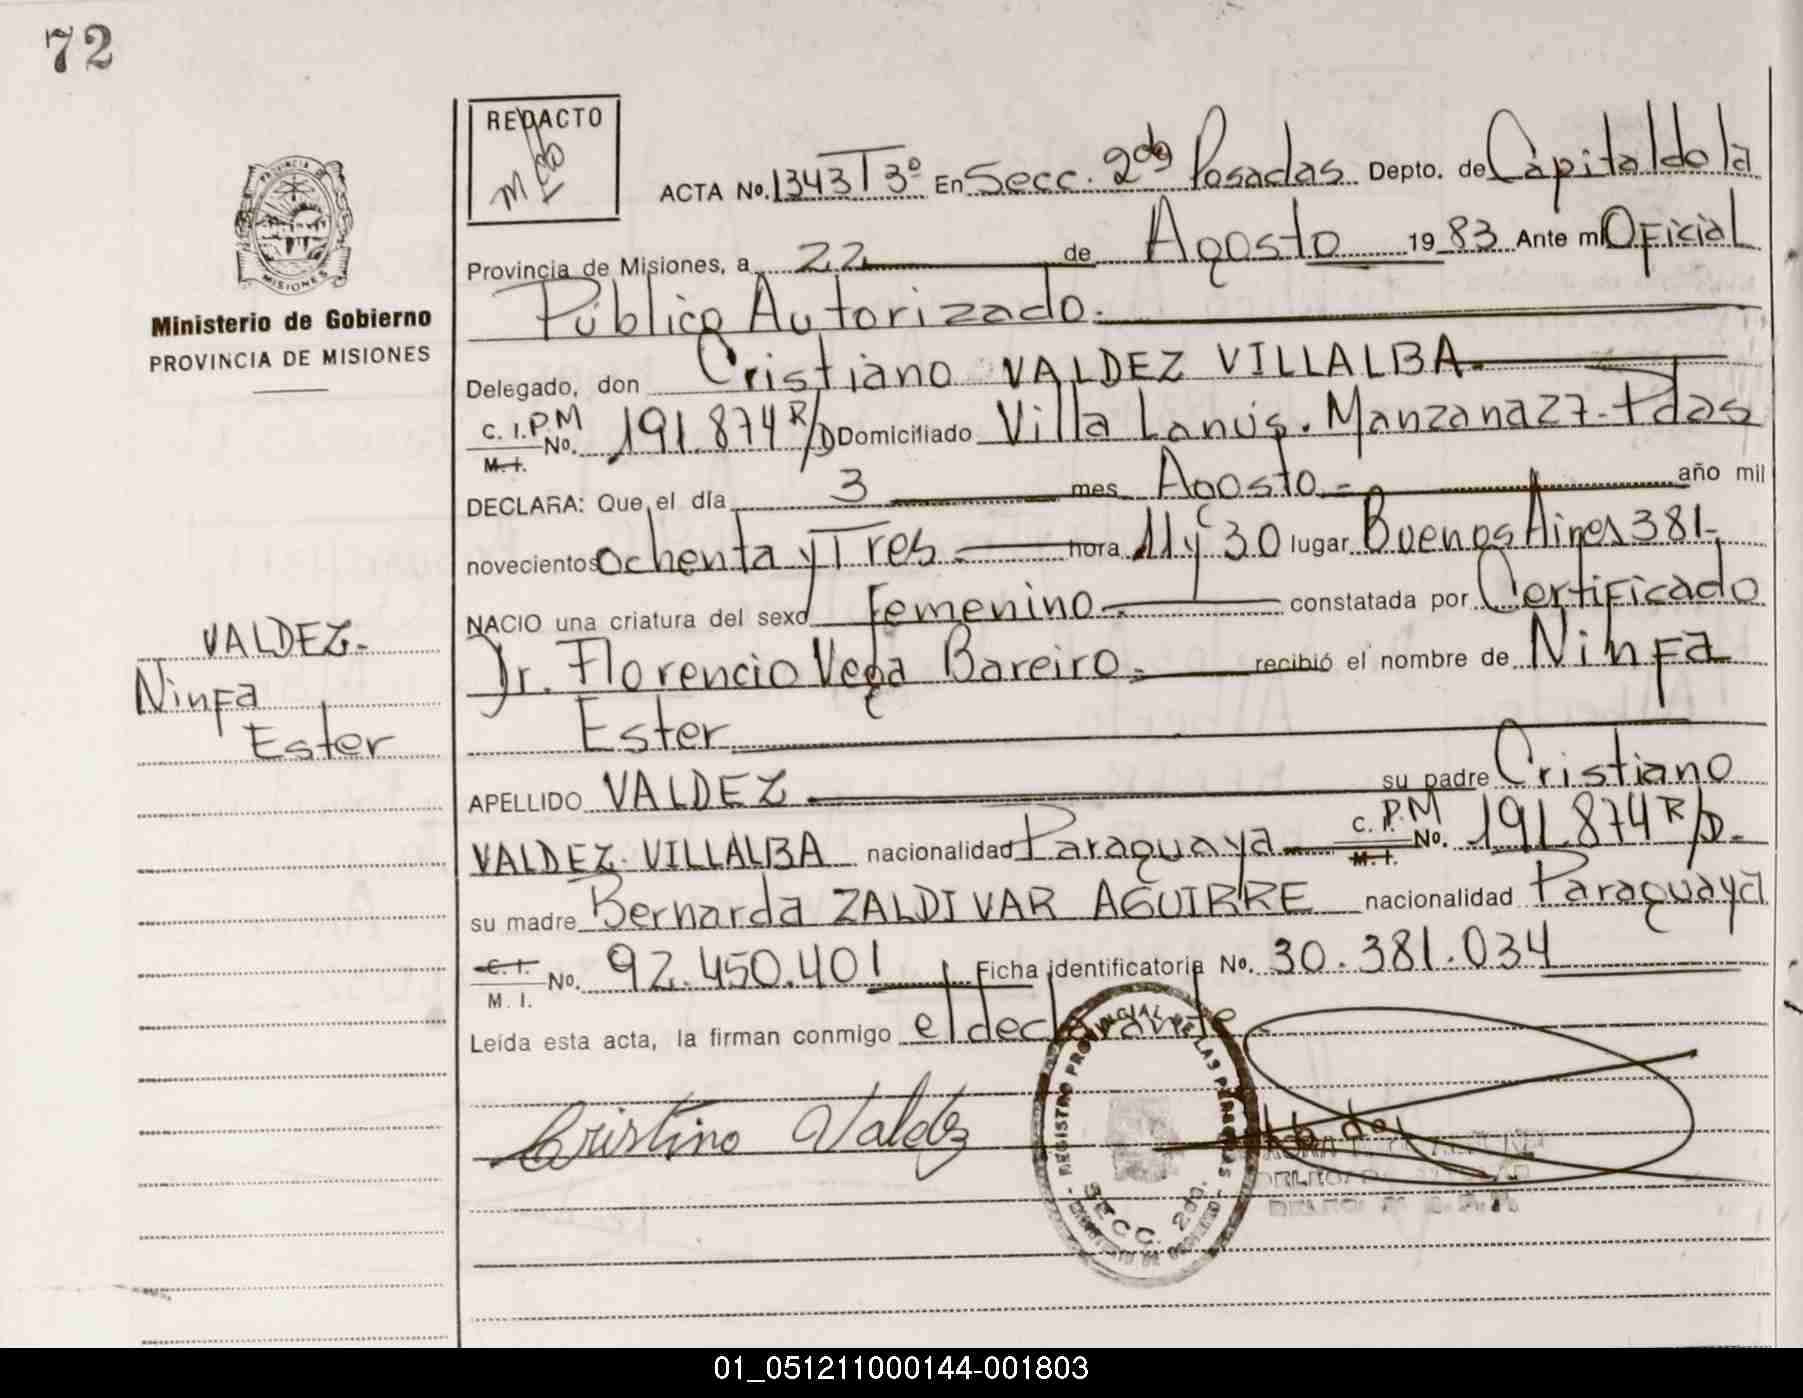 72
REDACTO
ACTA No. 1343 T 3º En Secc. 2da Posadas Depto. de Capital de la
Provincia de Misiones, a 22 de Agosto 1983 Ante mí Oficial
Público Autorizado.
Delegado, don Cristiano VALDEZ VILLALBA
C.I.P.M No. 191.874 R/D Domiciliado Villa Lanús. Manzana 27 - Pdas
M.I.
DECLARA: Que el día 3 mes Agosto año mil
novecientos ochenta y Tres hora 11 y 30 lugar Buenos Aires 381
NACIO una criatura del sexo femenino constatada por Certificado
Dr. Florencio Vega Bareiro recibió el nombre de Ninfa
Ester
APELLIDO VALDEZ su padre Cristiano
VALDEZ VILLALBA nacionalidad Paraguaya C.I.P.M No. 191.874 R/D
M.I.
su madre Bernarda ZALDIVAR AGUIRRE nacionalidad Paraguaya
C.I. No. 92.450.401 Ficha identificatoria No. 30.381.034
M.I.
Leída esta acta, la firman conmigo el declarante
Cristino Valdez
REGISTRO PROVINCIAL DE LAS PERSONAS
SECC. 2da.
PROVINCIA DE
MISIONES
Ministerio de Gobierno
PROVINCIA DE MISIONES
VALDEZ
Ninfa
Ester
01_051211000144-001803